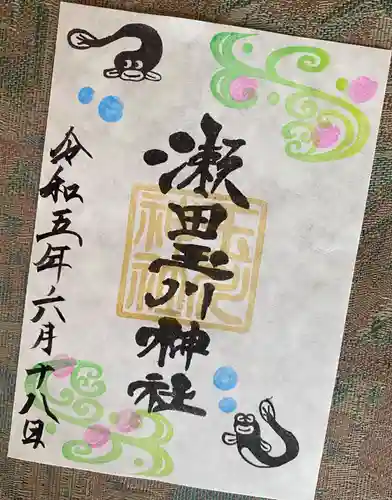 瀬田玉川神社
令和五年六月十八日